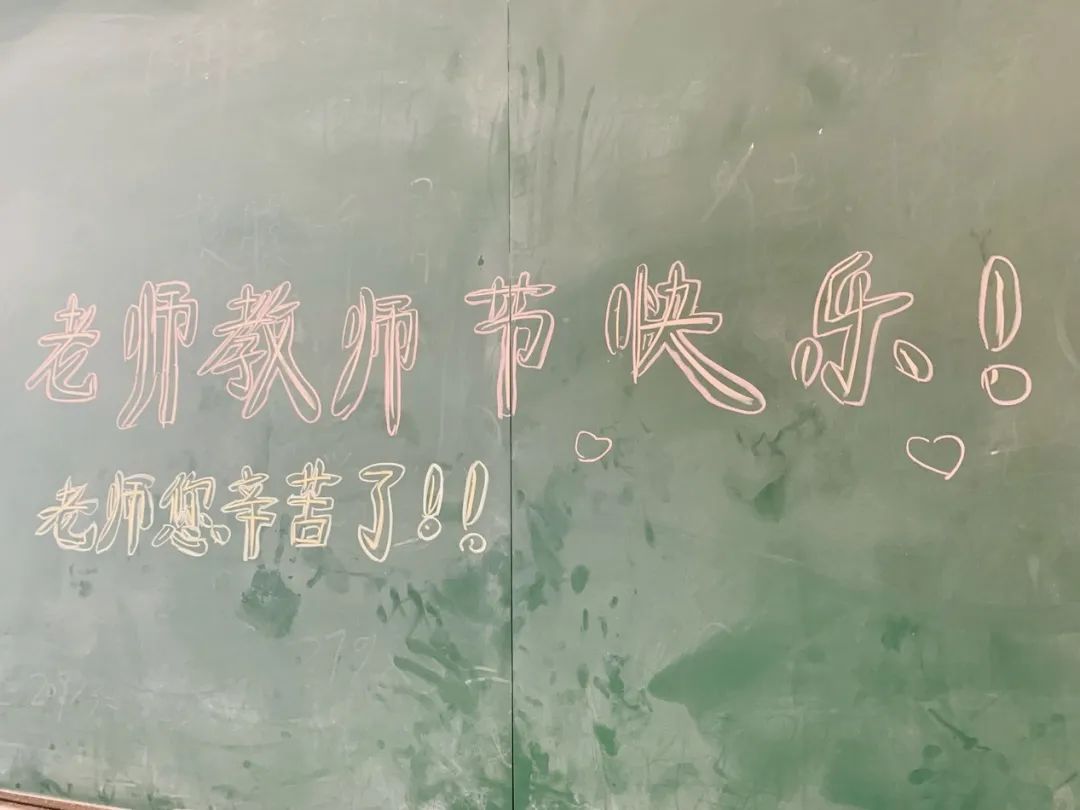 老师教师节快乐!
老师您辛苦了!!